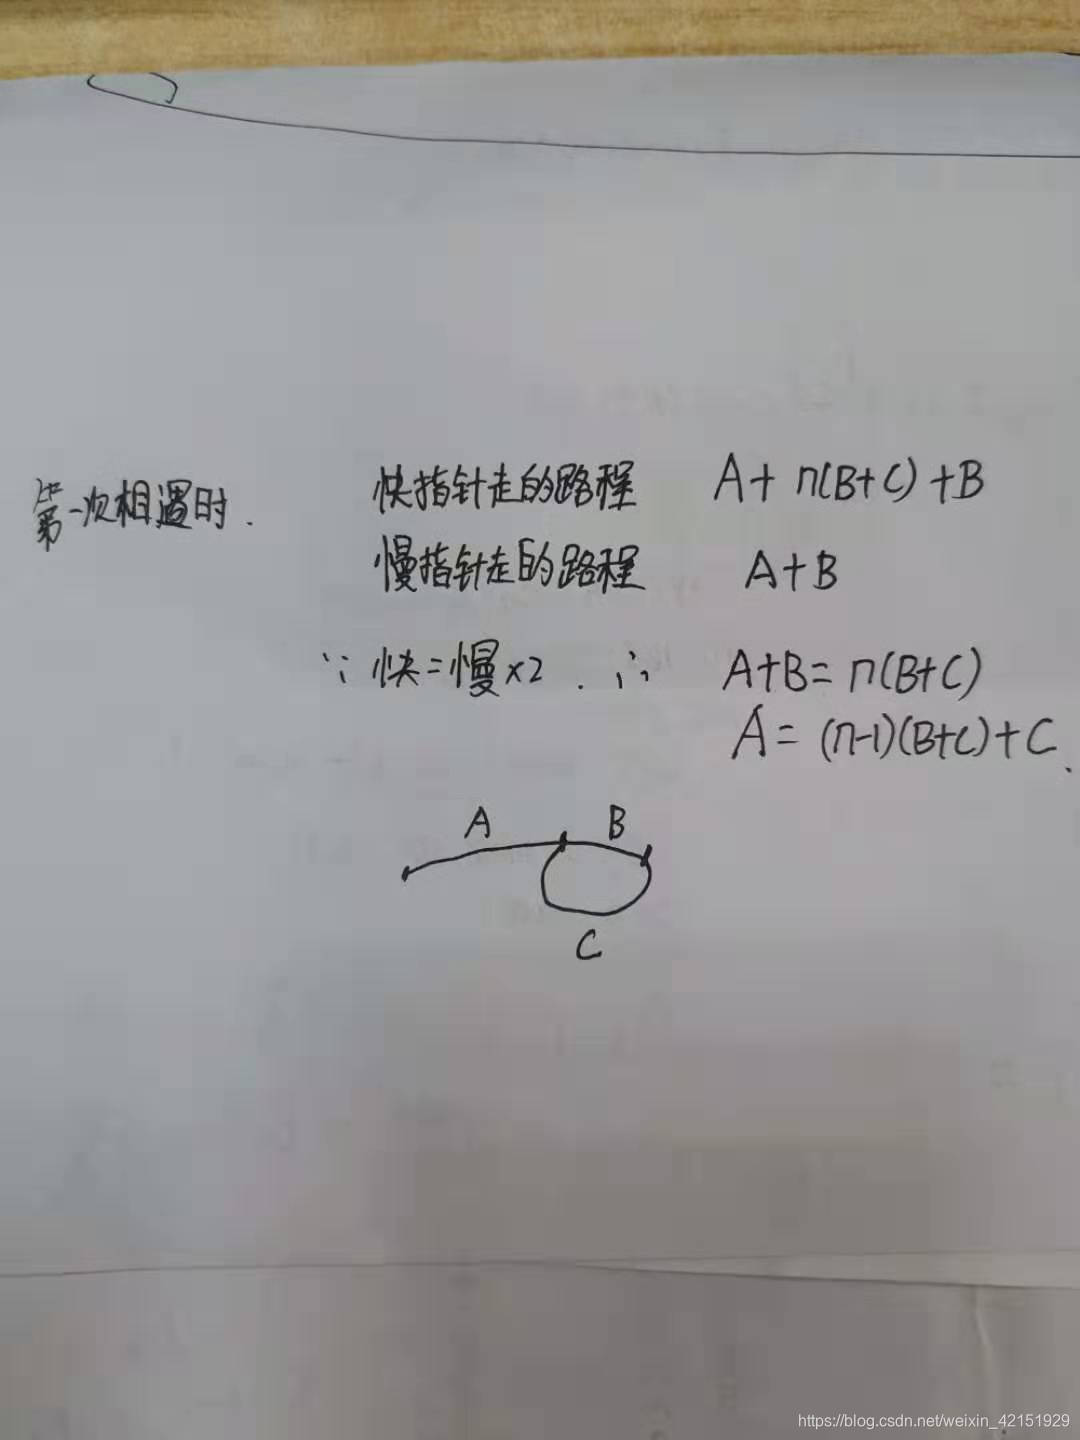 第一次相遇时.
快指针走的路程 A+ n(B+C)+B
慢指针走的路程 A+B
∵ 快=慢×2. ∴ A+B= n(B+C)
A= (n-1)(B+C)+C.
A B
C
https://blog.csdn.net/weixin_42151929